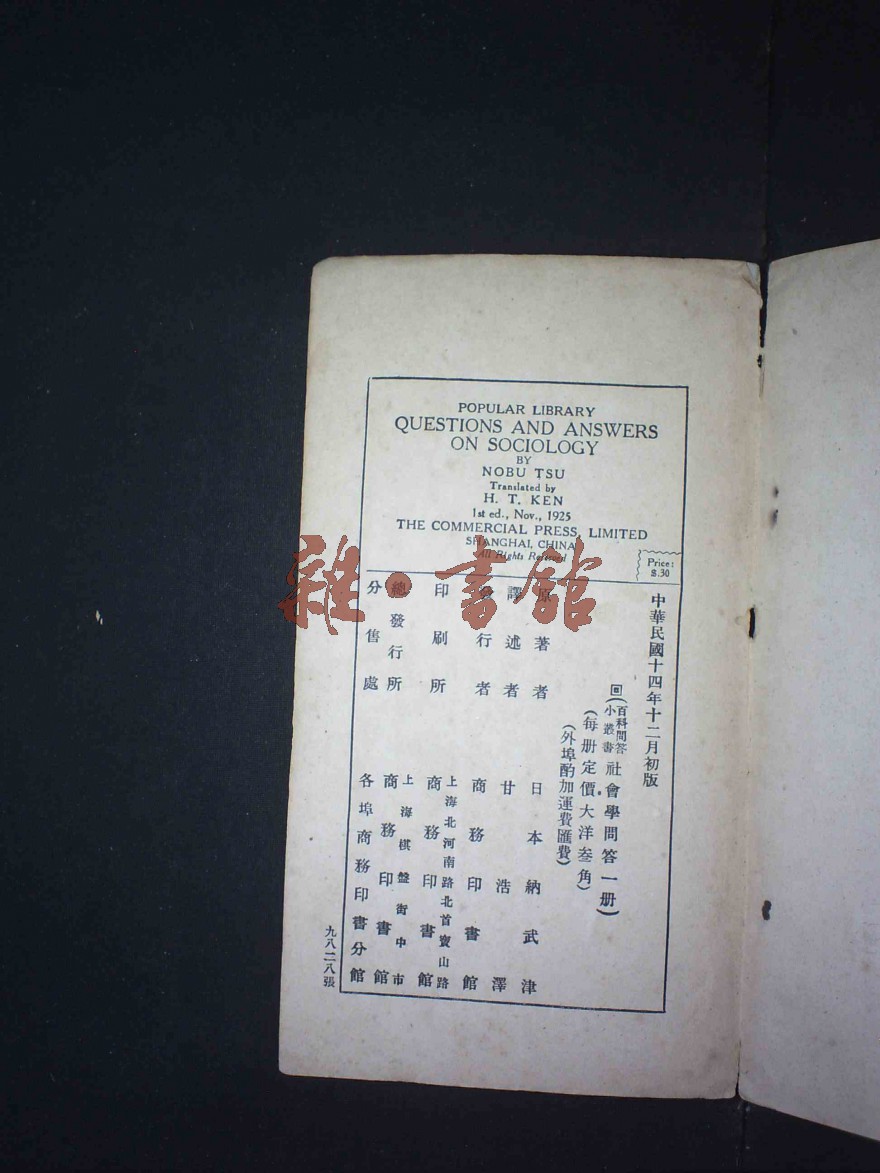 POPULAR LIBRARY
QUESTIONS AND ANSWERS
ON SOCIOLOGY
BY
NOBU TSU
Translated by
H. T. KEN
1st ed., Nov., 1925
THE COMMERCIAL PRESS, LIMITED
SHANGHAI, CHINA
All Rights Reserved
Price:
$.30
中華民國十四年十二月初版
回(百科問答小叢書社會學問答一册)
(每册定價大洋叁角)
(外埠酌加運費匯費)
原著者 日本納武津
譯述者 甘浩澤
發行者 商務印書館
印刷所 上海北河南路北首寶山路
商務印書館
總發行所 上海棋盤街中市
商務印書館
分售處 各埠商務印書分館
九八二八張
雜·書館